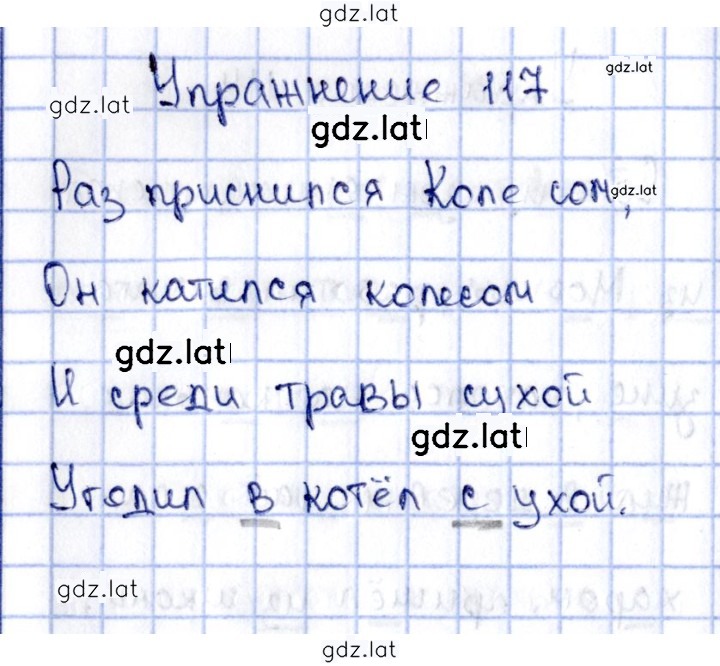 gdz.lat
Упражнение 117
gdz.lat
gdz.lat
gdz.lat
Раз приснился Коле сом,
gdz.lat
Он катился колесом
gdz.lat
И среди травы сухой
gdz.lat
Угодил в котёл с ухой.
gdz.lat
gdz.lat